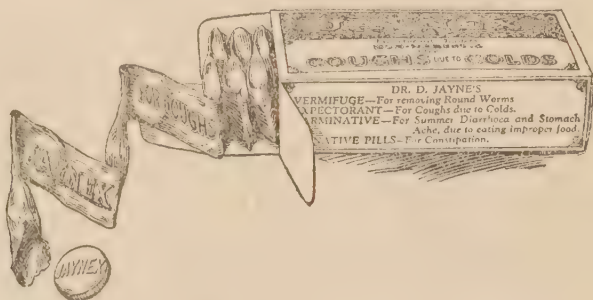 COUGHS DUE TO COLDS
DR. D. JAYNE'S
VERMIFUGE—For removing Round Worms
XPECTORANT—For Coughs due to Colds.
ARMINATIVE—For Summer Diarrhoea and Stomach
Ache, due to eating improper food.
ATIVE PILLS—For Constipation.
FOR COUGHS
JAYNE'S